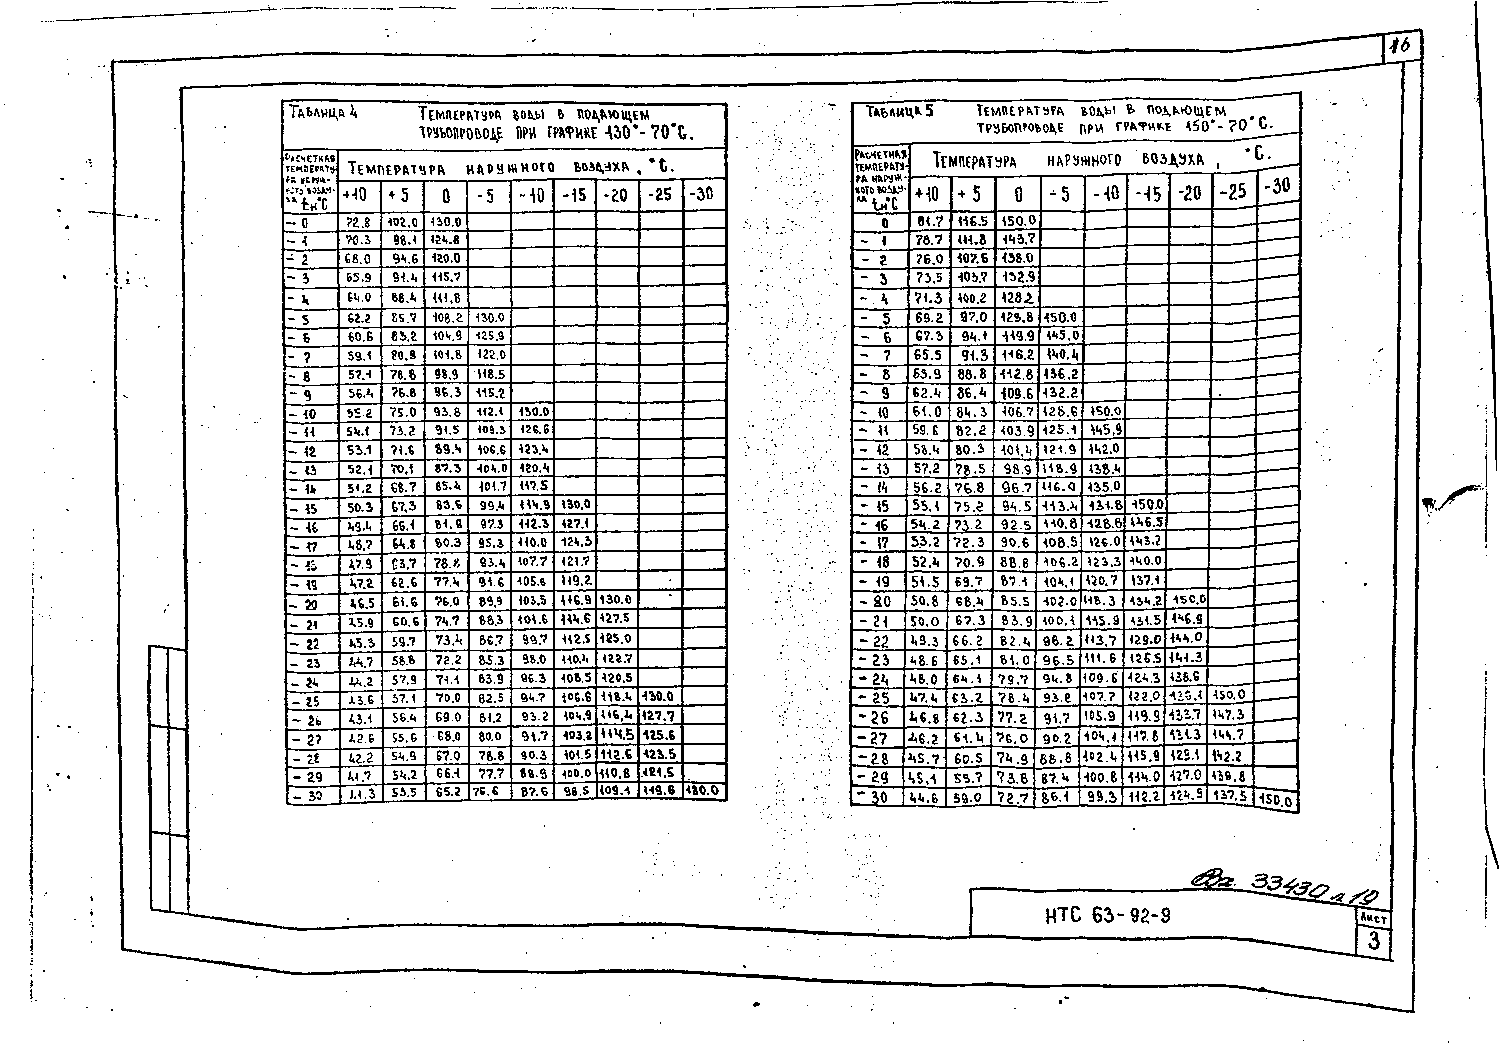 16
Таблица 4 Температура воды в подающем
трубопроводе при графике 130°- 70°С.
Расчетная температура наружного воздуха tн°С
Температура наружного воздуха, °С.
+10 +5 0 -5 -10 -15 -20 -25 -30
- 0 72.8 102.0 130.0
- 1 70.3 98.1 124.8
- 2 68.0 94.6 120.0
- 3 65.9 91.4 115.7
- 4 64.0 88.4 111.8
- 5 62.2 85.7 108.2 130.0
- 6 60.6 83.2 104.9 125.9
- 7 59.1 80.8 101.8 122.0
- 8 57.1 78.8 98.9 118.5
- 9 56.4 76.8 96.3 115.2
- 10 55.2 75.0 93.8 112.1 130.0
- 11 54.1 73.2 91.5 109.3 126.6
- 12 53.1 71.6 89.4 106.6 123.4
- 13 52.1 70.1 87.3 104.0 120.4
- 14 51.2 68.7 85.4 101.7 117.5
- 15 50.3 67.3 83.6 99.4 114.9 130.0
- 16 49.4 66.1 81.9 97.3 112.3 127.1
- 17 48.7 64.8 80.3 95.3 110.0 124.3
- 18 47.9 63.7 78.8 93.4 107.7 121.7
- 19 47.2 62.6 77.4 91.6 105.6 119.2
- 20 46.5 61.6 76.0 89.9 103.5 116.9 130.0
- 21 45.9 60.6 74.7 88.3 101.6 114.6 127.5
- 22 45.3 59.7 73.4 86.7 99.7 112.5 125.0
- 23 44.7 58.8 72.2 85.3 98.0 110.4 122.7
- 24 44.2 57.9 71.1 83.9 96.3 108.5 120.5
- 25 43.6 57.1 70.0 82.5 94.7 106.6 118.4 130.0
- 26 43.1 56.4 69.0 81.2 93.2 104.9 116.4 127.7
- 27 42.6 55.6 68.0 80.0 91.7 103.2 114.5 125.6
- 28 42.2 54.9 67.0 78.8 90.3 101.5 112.6 123.5
- 29 41.7 54.2 66.1 77.7 88.9 100.0 110.8 121.5
- 30 41.3 53.5 65.2 76.6 87.6 98.5 109.1 119.6 130.0
Таблица 5 Температура воды в подающем
трубопроводе при графике 150°- 70°С.
Расчетная температура наружного воздуха tн°С
Температура наружного воздуха, °С.
+10 +5 0 -5 -10 -15 -20 -25 -30
0 81.7 116.5 150.0
- 1 78.7 111.8 143.7
- 2 76.0 107.6 138.0
- 3 73.5 103.7 132.9
- 4 71.3 100.2 128.2
- 5 69.2 97.0 123.8 150.0
- 6 67.3 94.1 119.9 145.0
- 7 65.5 91.3 116.2 140.4
- 8 63.9 88.8 112.8 136.2
- 9 62.4 86.4 109.6 132.2
- 10 61.0 84.3 106.7 128.6 150.0
- 11 59.6 82.2 103.9 125.1 145.9
- 12 58.4 80.3 101.4 121.9 142.0
- 13 57.2 78.5 98.9 118.9 138.4
- 14 56.2 76.8 96.7 116.0 135.0
- 15 55.1 75.2 94.5 113.4 131.8 150.0
- 16 54.2 73.2 92.5 110.8 128.8 146.5
- 17 53.2 72.3 90.6 108.5 126.0 143.2
- 18 52.4 70.9 88.8 106.2 123.3 140.0
- 19 51.5 69.7 87.1 104.1 120.7 137.1
- 20 50.8 68.4 85.5 102.0 118.3 134.2 150.0
- 21 50.0 67.3 83.9 100.1 115.9 131.5 146.9
- 22 49.3 66.2 82.4 98.2 113.7 129.0 144.0
- 23 48.6 65.1 81.0 96.5 111.6 126.5 141.3
- 24 48.0 64.1 79.7 94.8 109.6 124.3 138.6
- 25 47.4 63.2 78.4 93.2 107.7 122.0 136.1 150.0
- 26 46.8 62.3 77.2 91.7 105.9 119.9 133.7 147.3
- 27 46.2 61.4 76.0 90.2 104.1 117.8 131.3 144.7
- 28 45.7 60.5 74.9 88.8 102.4 115.9 129.1 142.2
- 29 45.1 59.7 73.8 87.4 100.8 114.0 127.0 139.8
- 30 44.6 59.0 72.7 86.1 99.3 112.2 124.9 137.5 150.0
33430 л 19
НТС 63-92-9
Лист
3